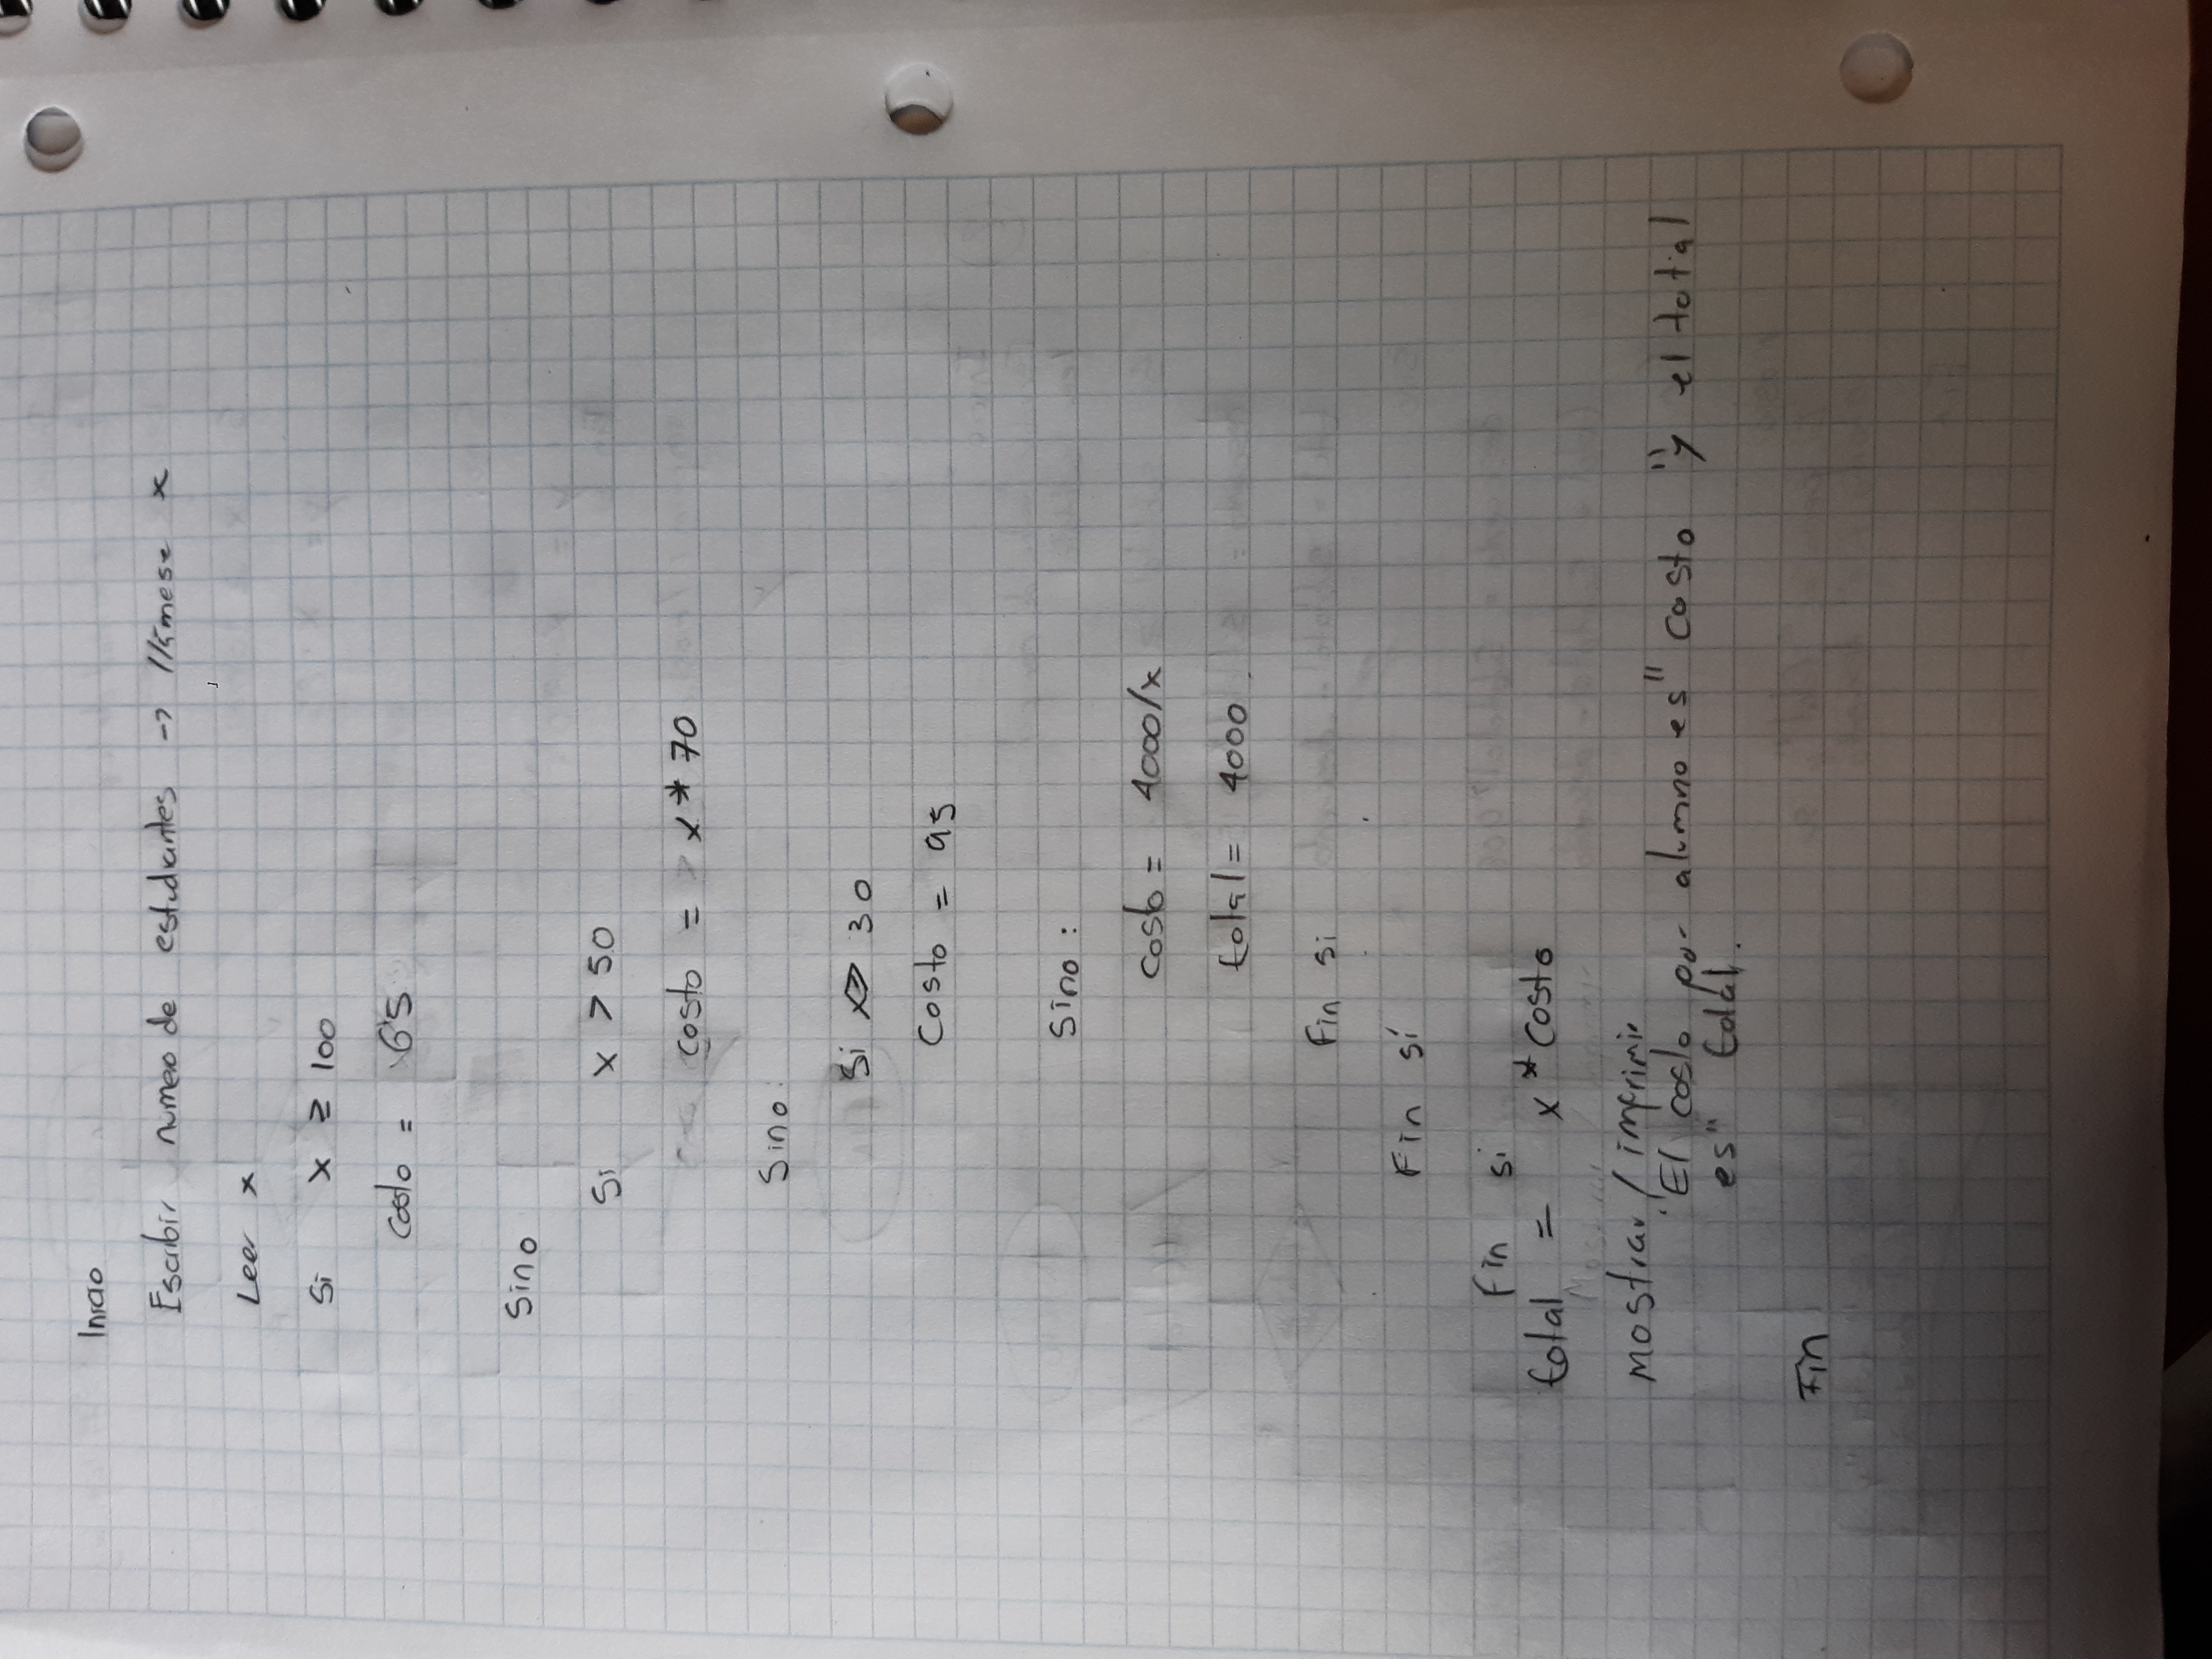 Inicio
Escribir numero de estudiantes -> llámese x
Leer x
Si x ≥ 100
costo = 65
Sino
Si x > 50
costo = x * 70
Sino:
Si x ≥ 30
Costo = 95
Sino:
costo = 4000/x
total = 4000
Fin si
Fin sí
Fin si
total = x * costo
mostrar / imprimir
"El costo por alumno es" costo "y el total
es" total.
Fin